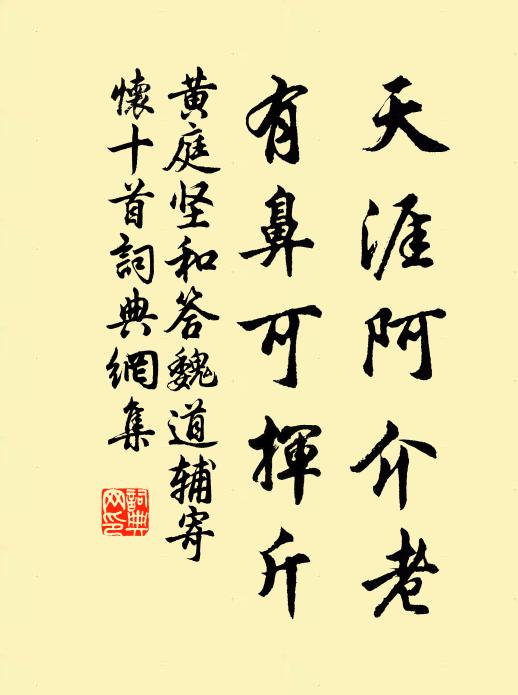 天涯阿介老
有鼻可揮斤
黄庭坚和答魏道辅寄
懷十首詞典網集
詞典
网印